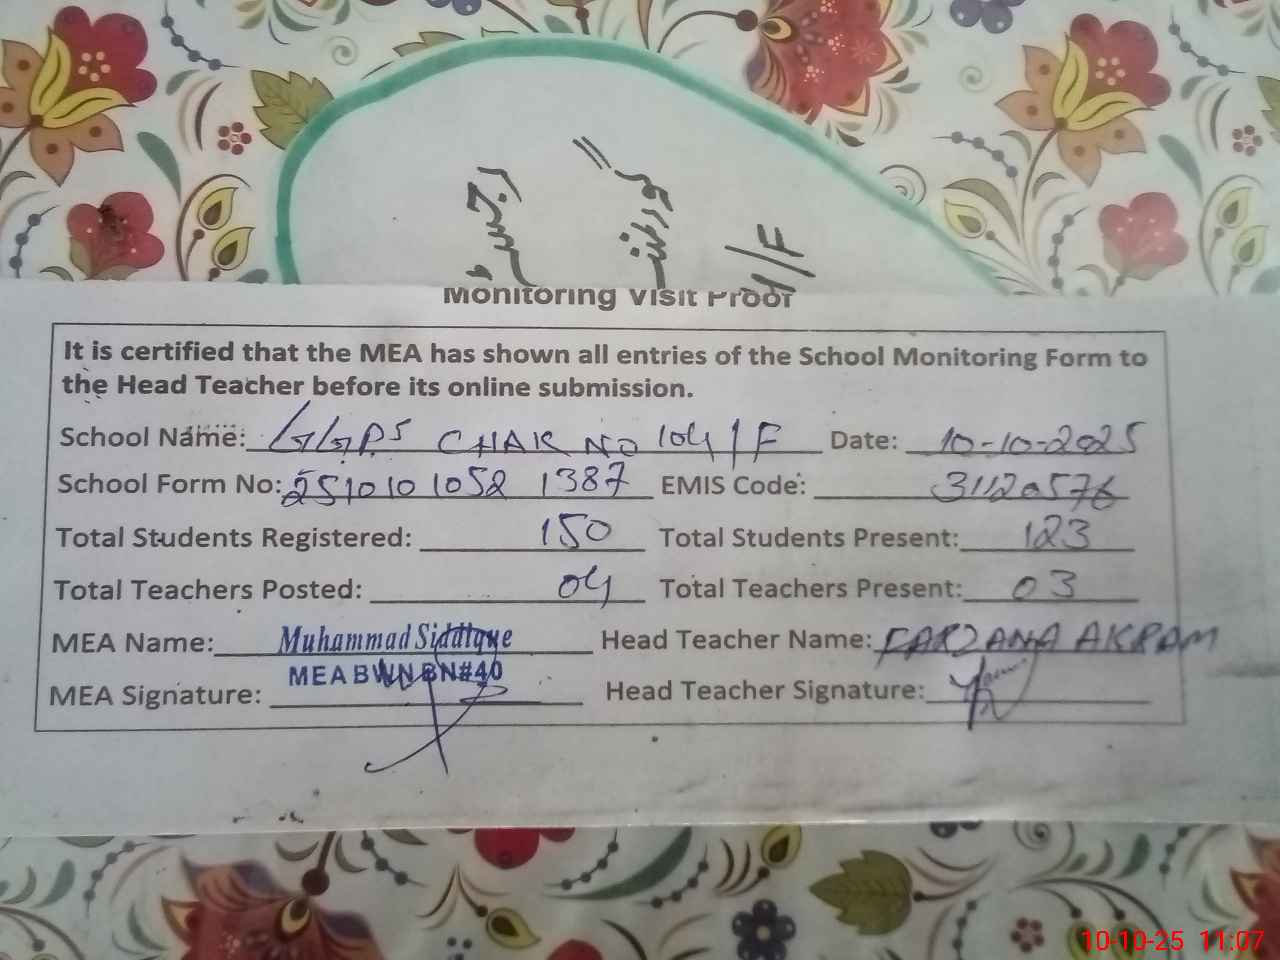 گورنمنٹ
/F
Monitoring Visit Proof
It is certified that the MEA has shown all entries of the School Monitoring Form to
the Head Teacher before its online submission.
School Name: GGPS CHAK NO 104/F Date: 10-10-2025
School Form No: 2510101052 1387 EMIS Code: 31120576
Total Students Registered: 150 Total Students Present: 123
Total Teachers Posted: 04 Total Teachers Present: 03
MEA Name: Muhammad Siddique Head Teacher Name: FARZANA AKRAM
MEA BWN BN#40
MEA Signature: Head Teacher Signature:
10-10-25 11:07